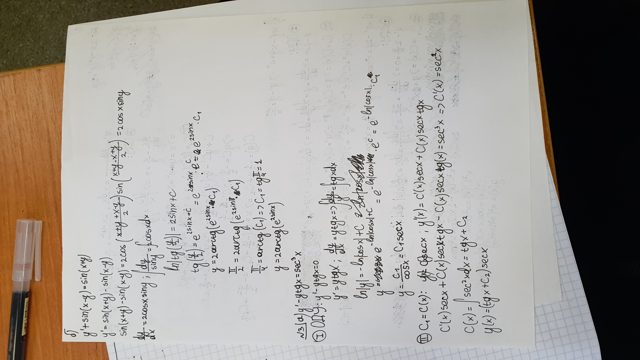 б)
y' + sin(x-y) = sin(x+y)
y' = sin(x+y) - sin(x-y)
sin(x+y) - sin(x-y) = 2cos(x+y+x-y/2) sin(x+y-x+y/2) = 2cosx siny
dy/dx = 2cosx siny; ∫dy/siny = ∫2cosx dx
ln|tg(y/2)| = 2sinx + C
tg(y/2) = e^(2sinx+C) = e^(2sinx) · C₁
y = 2arctg(e^(2sinx) · C₁)
π/2 = 2arctg(C₁)
π/4 = arctg(C₁) => C₁ = tg π/4 = 1
y = 2arctg(e^(2sinx))
№3 (a) y' - ytgx = sec³x
Ⅰ ОДУ: y' - ytgx = 0
y' = ytgx; dy/dx = ytgx => ∫dy/y = ∫tgxdx
ln|y| = -ln|cosx| + C
y = e^(-ln|cosx|+C) = e^(-ln|cosx|) · e^C = e^(-ln|cosx|) · C₁
y = C₁/cosx = C₁secx
Ⅱ C₁ = C(x): C(x)secx; y'(x) = C'(x)secx + C(x)secxtgx
C'(x)secx + C(x)secxtgx - C(x)secxtg(x) = sec³x => C'(x) = sec²x
C(x) = ∫sec²xdx = tgx + C₂
y(x) = (tgx + C₂)secx